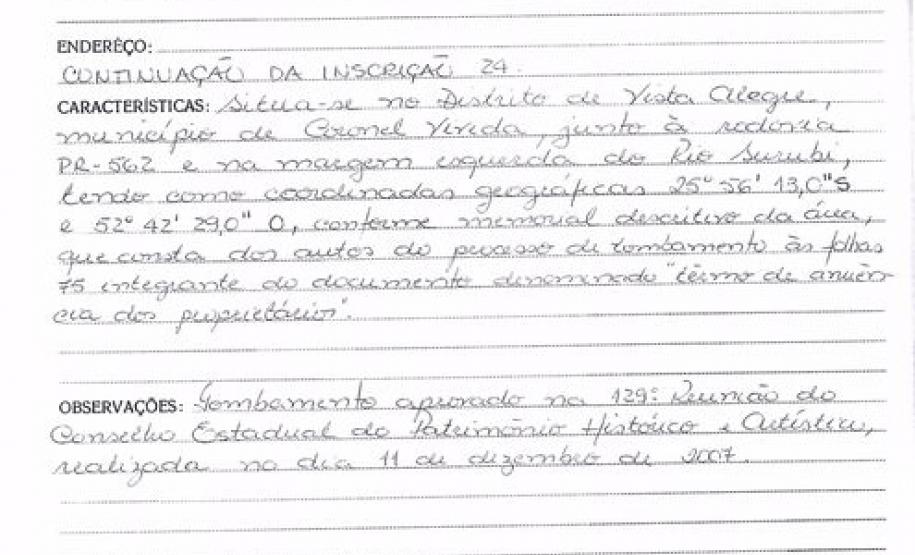 ENDERÊÇO:
CONTINUAÇÃO DA INSCRIÇÃO 24.
CARACTERÍSTICAS: Situa-se no Distrito de Vista Alegre,
município de Coronel Vivida, junto à rodovia
PR-562 e na margem esquerda do Rio Surubi,
tendo como coordinadas geográficas 25° 56' 13,0"S
e 52° 42' 29,0" O, conforme memorial descritivo da área,
que consta dos autos do processo de tombamento às folhas
75 integrante do documento denominado "têrmo de anuên-
cia dos proprietários".
OBSERVAÇÕES: Tombamento aprovado na 129ª Reunião do
Conselho Estadual do Patrimonio Histórico e Artístico,
realizada no dia 11 de dezembro de 2007.